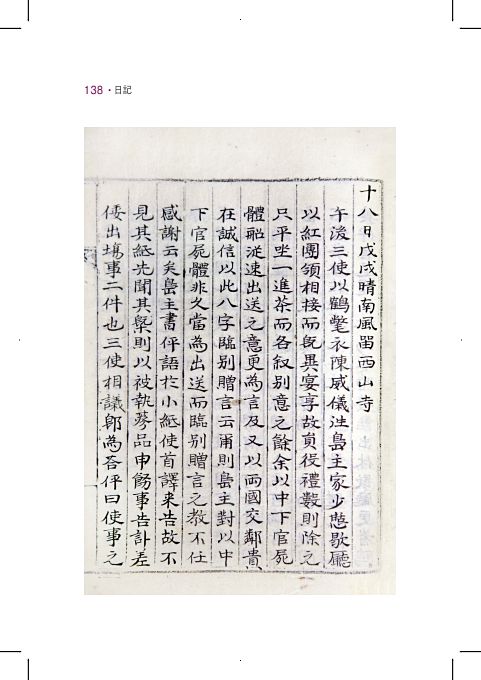 138 · 日記
十八日戊戌晴南風留西山寺
午後三使以鶴氅衣陳威儀往島主家少憇歇廳
以紅團領相接而旣異宴享故員役禮數則除之
只平坐一進茶而各叙別意之餘余以中下官屍
體船從速出送之意更為言及又以兩國交鄰貴
在誠信以此八字臨別贈言云甫則島主對以中
下官屍體非久當為出送而臨別贈言之教不任
感謝云矣島主書伻語於小紙使首譯来告故不
見其紙先聞其槩則以被執蔘品申飭事告訃差
倭出場事二件也三使相議郎為答伻曰使事之